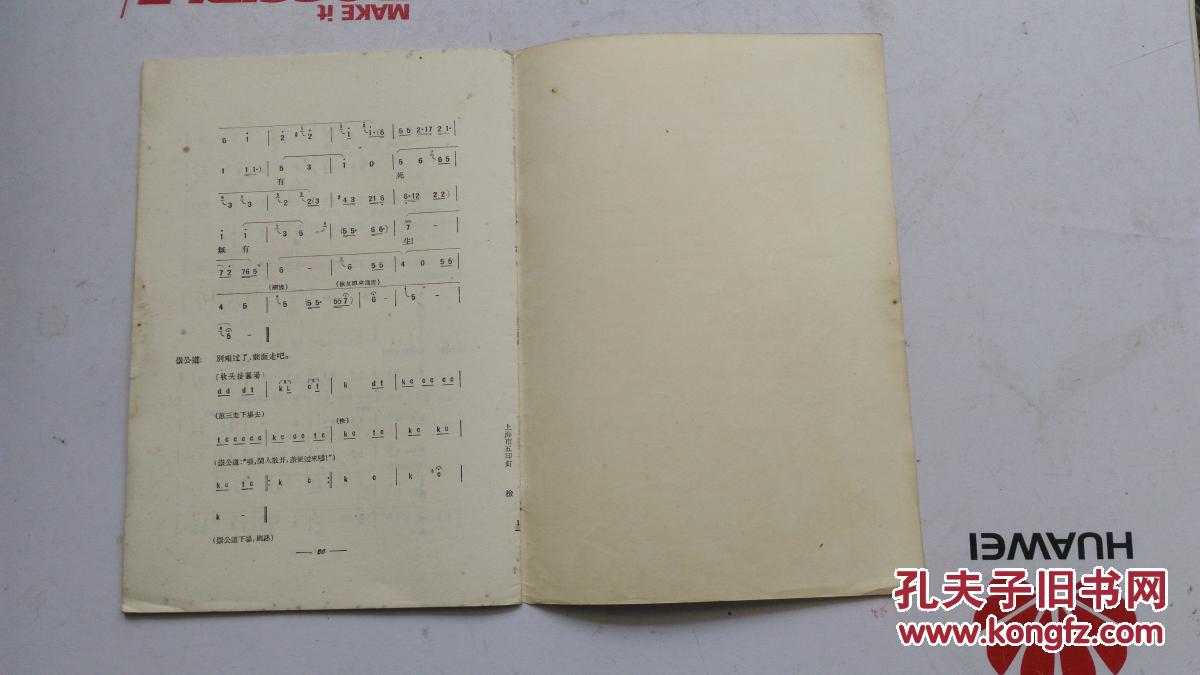 MAKE it
6 i | 2 2 | i i·(6 | 5 5 2·17 2 1·
1 1 1·) | 5 3 | i 0 | 5 6 6 5
有 死
3 3 | 2 2(3 | 4 3 21 6 | 6·12 2 2)
i i | 3 5 - | (5 5· 6 6·) | 7 -
無 有 生!
7 2 76 5 | 6 - | 6 5 5 | 4 0 5 5
(漸慢)
4 5 | 5 (5 5· 55 7) | 6 - | 5 -
5 -
崇公道: 別难过了,前面走吧。
d d d t | k t c t | k d t | k c c c c c
(苏三走下場去) (快)
t c c c c c | k c c c t c | k c t c | k c k c
k c t c | k c | k c | k c
k -
(崇公道下場,幕閉)
— 56 —
上海市五印釘 检
1
HUAWEI
孔夫子旧书网
www.kongfz.com